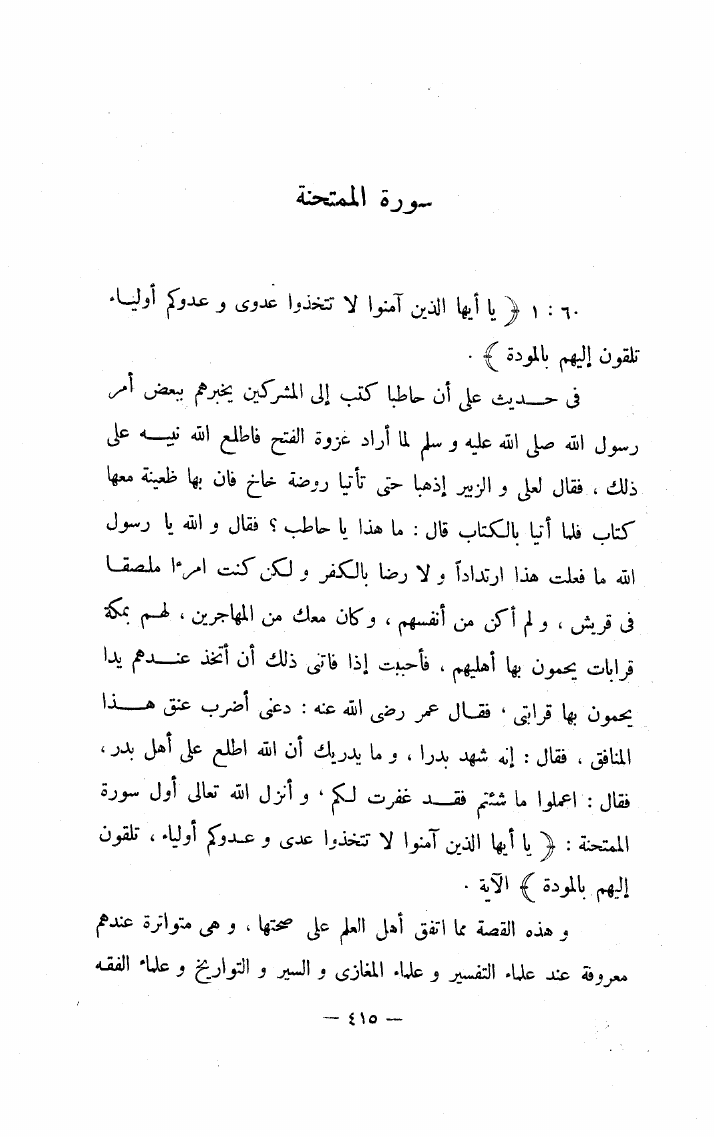 سورة الممتحنة
٦٠ : ١ ﴿ يا أيها الذين آمنوا لا تتخذوا عدوى و عدوكم أولياء
تلقون إليهم بالمودة ﴾ .
فى حـديث على أن حاطبا كتب إلى المشركين يخبرهم ببعض أمر
رسول الله صلى الله عليه و سلم لما أراد غزوة الفتح فاطلع الله نبيـه على
ذلك ، فقال لعلى و الزبير إذهبا حتى تأتيا روضة خاخ فان بها ظعينة معها
كتاب فلما أتيا بالكتاب قال : ما هذا يا حاطب ؟ فقال و الله يا رسول
الله ما فعلت هذا ارتداداً و لا رضا بالكفر و لكن كنت امرءا ملصقـا
فى قريش ، و لم أكن من أنفسهم ، و كان معك من المهاجرين ، لهـم بمكة
قرابات يحمون بها أهليهم ، فأحببت إذا فاتنى ذلك أن أتخذ عنـدهم يدا
يحمون بها قرابتى ، فقـال عمر رضى الله عنه : دعنى أضرب عنق هـذا
المنافق ، فقال : إنه شهد بدرا ، و ما يدريك أن الله اطلع على أهل بدر ،
فقال : اعملوا ما شئتم فقـد غفرت لكم ، و أنزل الله تعالى أول سورة
الممتحنة : ﴿ يا أيها الذين آمنوا لا تتخذوا عدى و عـدوكم أولياء ، تلقون
إليهم بالمودة ﴾ الآية .
و هذه القصة مما اتفق أهل العلم على صحتها ، و هى متواترة عندهم
معروفة عند علماء التفسير و علماء المغازى و السير و التواريخ و علماء الفقه
— ٤١٥ —